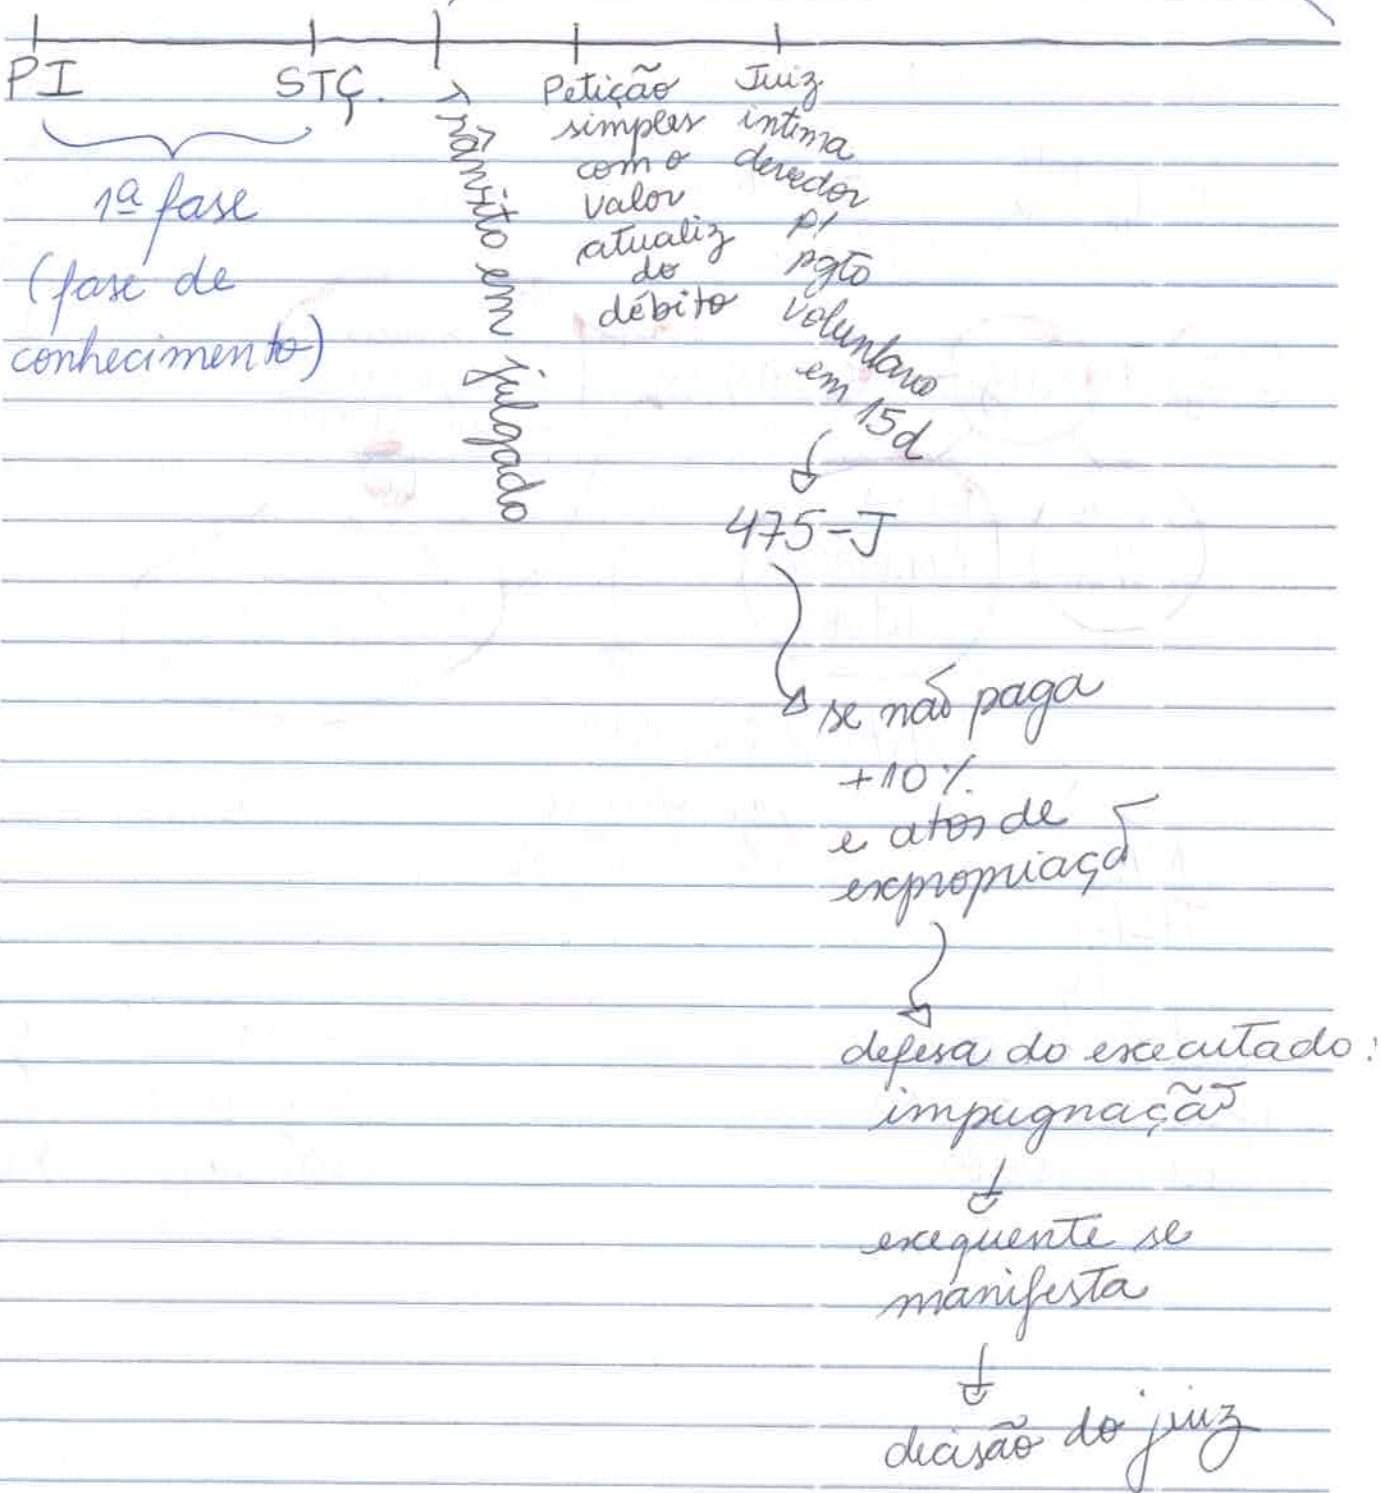 PI
STÇ.
1ª fase
(fase de
conhecimento)
Trânsito em julgado
Petição
simples
com o
valor
atualiz
do
débito
Juiz
intima
devedor
p/
pgto
voluntário
em 15d
475-J
se não paga
+10%
e atos de
expropriaçã
defesa do executado:
impugnação
exequente se
manifesta
decisão do juiz